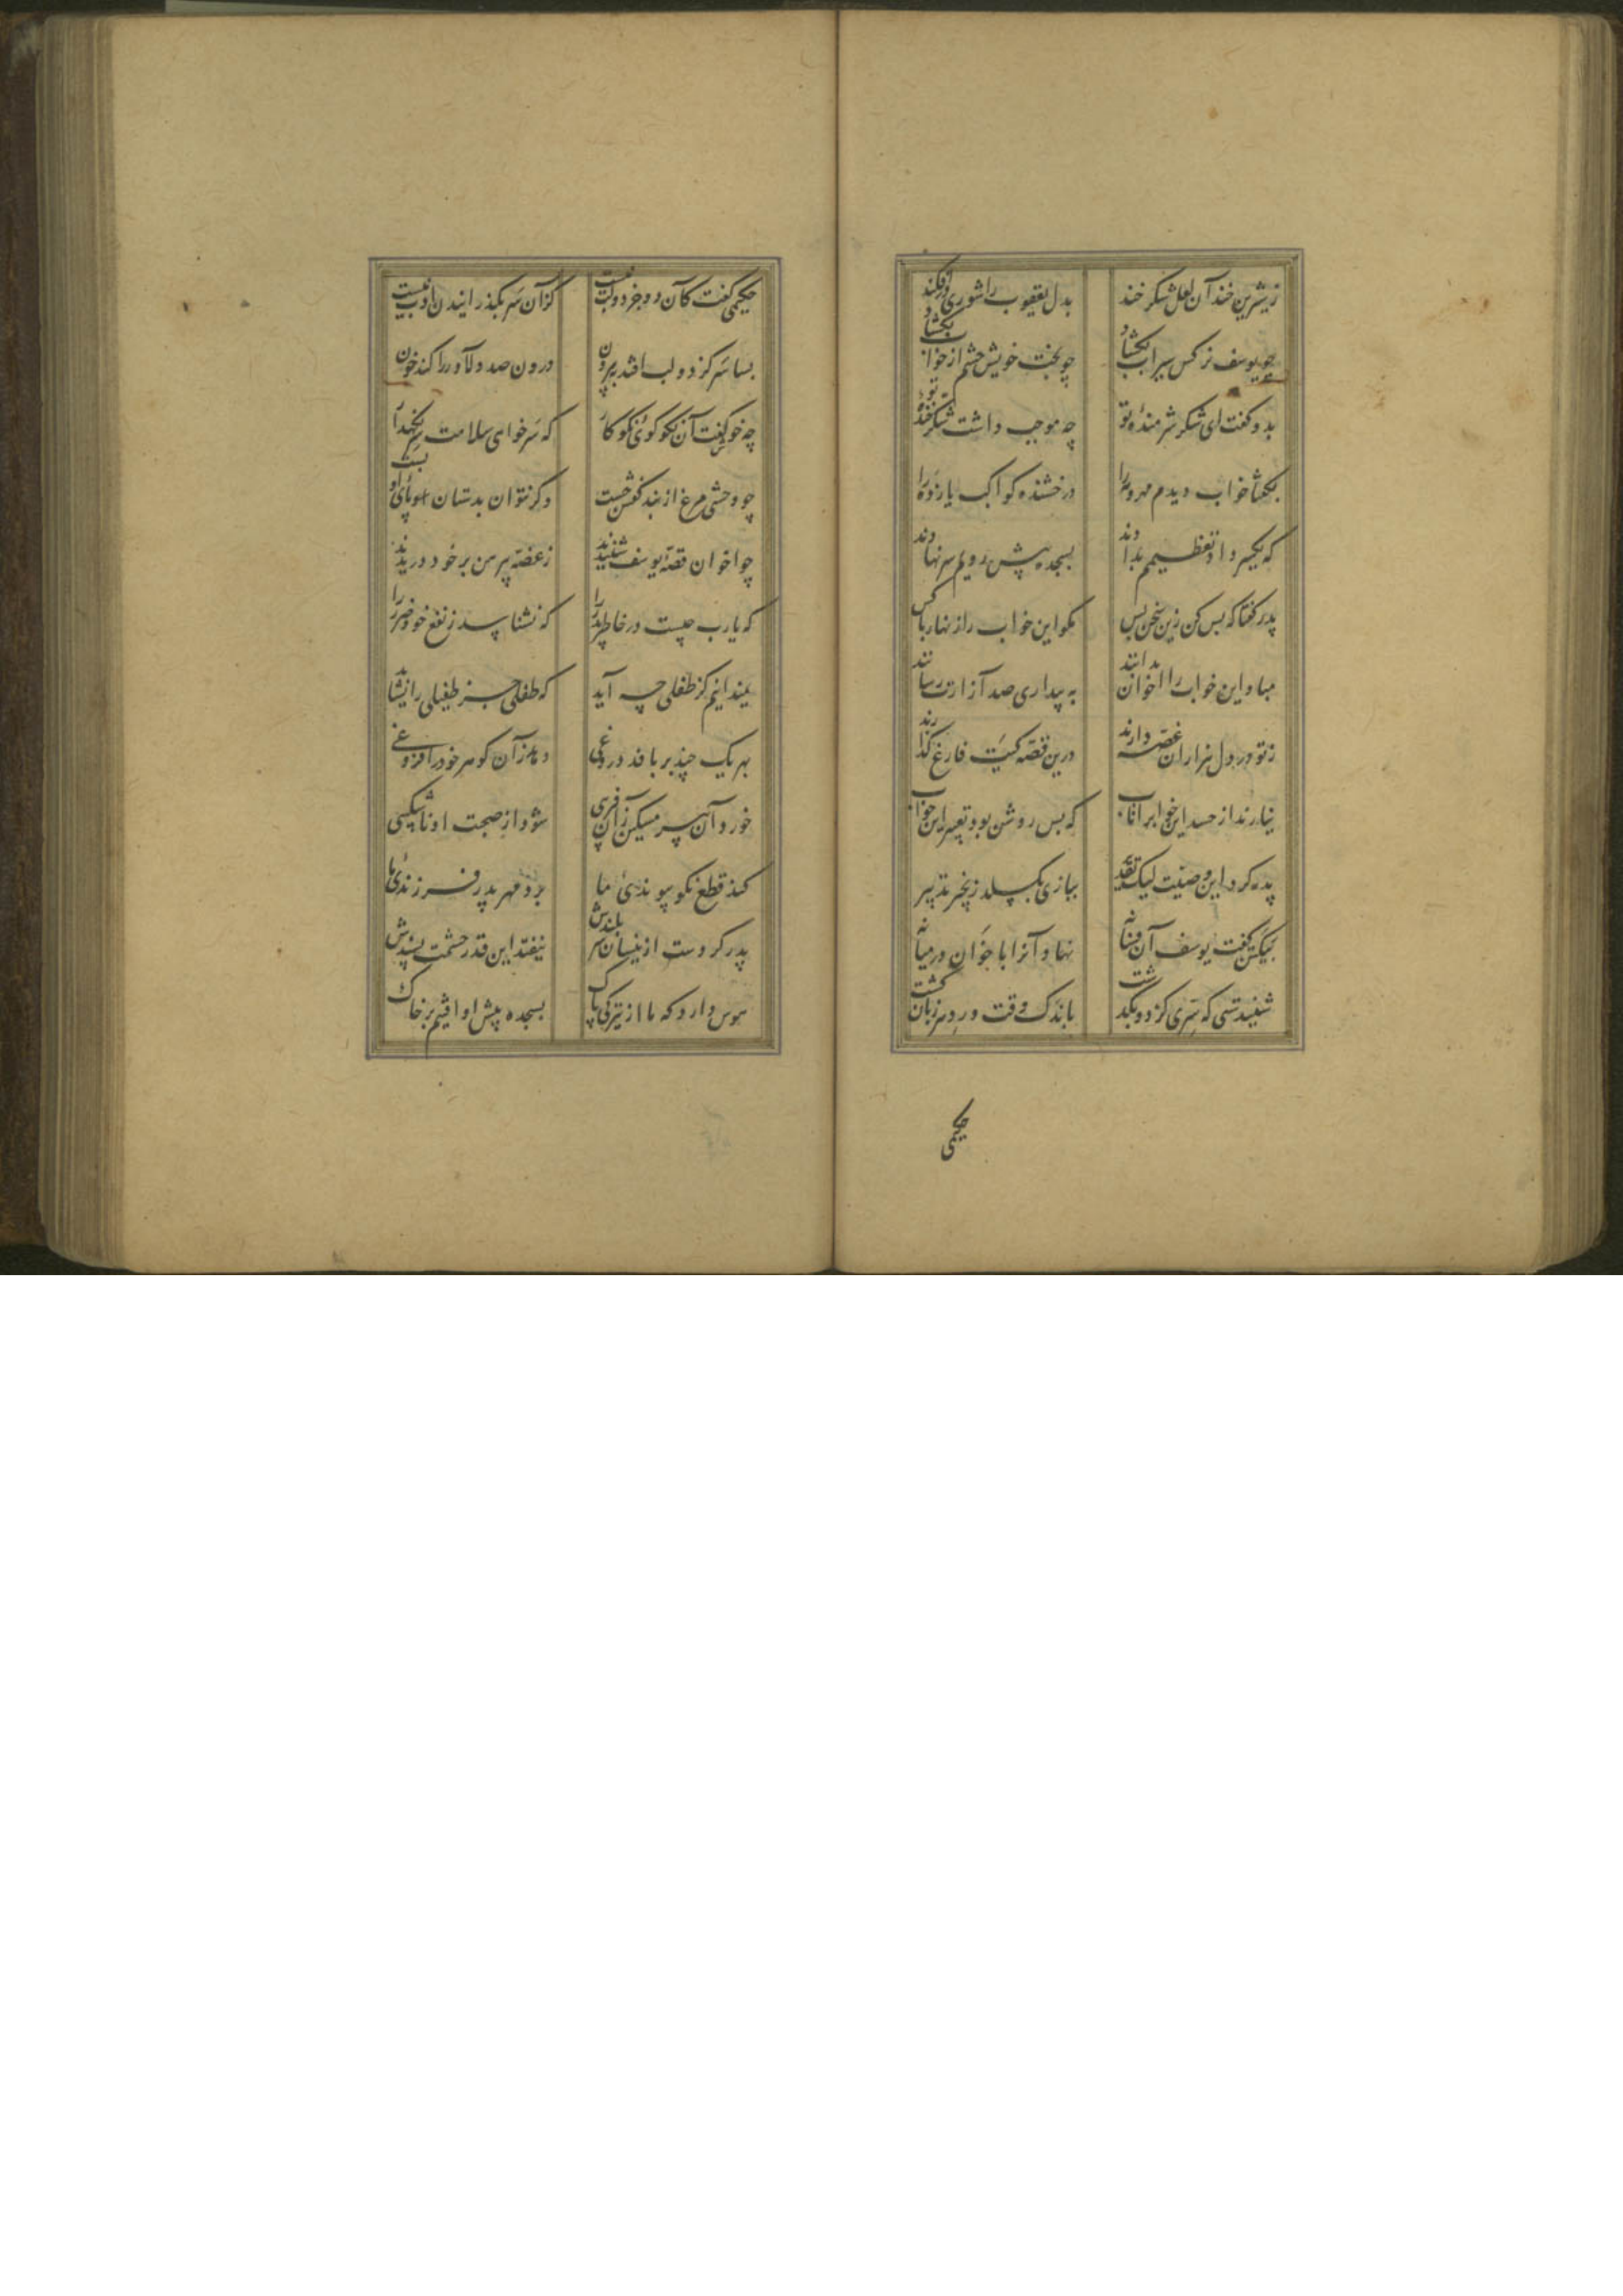 ز شیرین خند آن لعل شکر خند بدل یعقوب را شوری در افکند
چو یوسف نرکس سیراب بکشاد چو بخت خویش چشم از خواب بکشاد
بدو کفت ای شکر شرمندهٔ تو چه موجب داشت شکر خندهٔ تو
بکفتا خواب دیدم مهر و مه را ز رخشنده کواکب یازده را
که یکسر داد تعظیمم بدادند بسجده پیش رویم سر نهادند
پدر کفتا که بس کن زین سخن بس مکو این خواب را زنهار با کس
مباد این خواب را اخوان بدانند به بیداری صد آزارت رسانند
ز تو در دل هزاران غصه دارند درین قصه کیت فارغ کذارند
نیارند از حسد این خواب را تاب که بس روشن بود تعبیر این خواب
پدر کرد این وصیت لیک تقدیر ببازی بکسلد زنجیر تدبیر
بیک تن کفت یوسف آن فسانه نهاد آنرا باخوان در میانه
شنیدستی که سری کز دو بکذشت باندک وقت ورد هر زبان کشت
حکیمی
حکیمی کفت کان دو جز دو لب نیست کزان سر بکذرانیدن ادب نیست
بسا سر کز دو لب افتد به بیرون درون صد دلاور را کند خون
چه خوش کفت آن نکو کوی نکو کار که سر خواهی سلامت سر نکهدار
چو وحشی مرغ از بند قفس جست دکر نتوان بدستان پای او بست
چو اخوان قصهٔ یوسف شنیدند ز غصه پیرهن بر خود دریدند
که یا رب چیست در خاطر پدر را که نشناسد ز نفع خود ضرر را
نمیدانیم کز طفلی چه آید که طفلی جز طفیلی را نشاید
بهر یک چند بر بافد دروغی دهد زان کوهر خود را فروغی
خورد آن پیر مسکین زان فریبی شود از صحبت او ناشکیبی
کند قطع نکو پیوندئ ما برد مهر پدر فرزندئ ما
پدر کردست ازینسان سر بلندش نیفتد این قدر حشمت پسندش
هوس دارد که ما از تیرکی پاک بسجده پیش او افتیم بر خاک